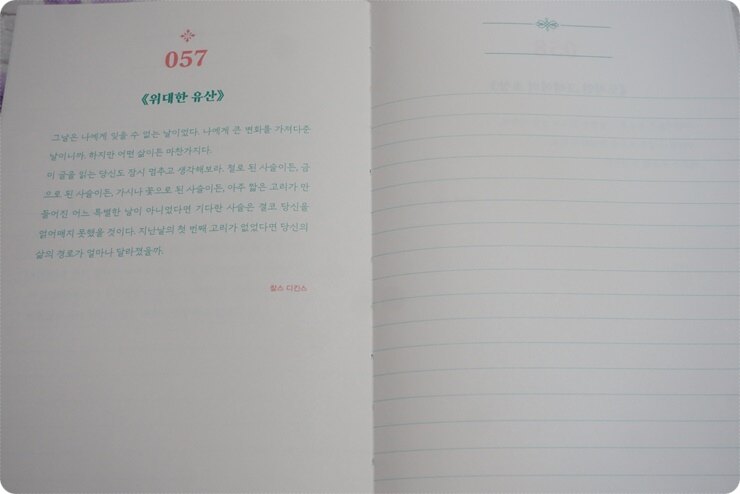 057
《위대한 유산》
그날은 나에게 잊을 수 없는 날이었다. 나에게 큰 변화를 가져다준
날이니까. 하지만 어떤 삶이든 마찬가지다.
이 글을 읽는 당신도 잠시 멈추고 생각해보라. 철로 된 사슬이든, 금
으로 된 사슬이든, 가시나 꽃으로 된 사슬이든, 아주 짧은 고리가 만
들어진 어느 특별한 날이 아니었다면 기다란 사슬은 결코 당신을
얽어매지 못했을 것이다. 지난날의 첫 번째 고리가 없었다면 당신의
삶의 경로가 얼마나 달라졌을까.
찰스 디킨스